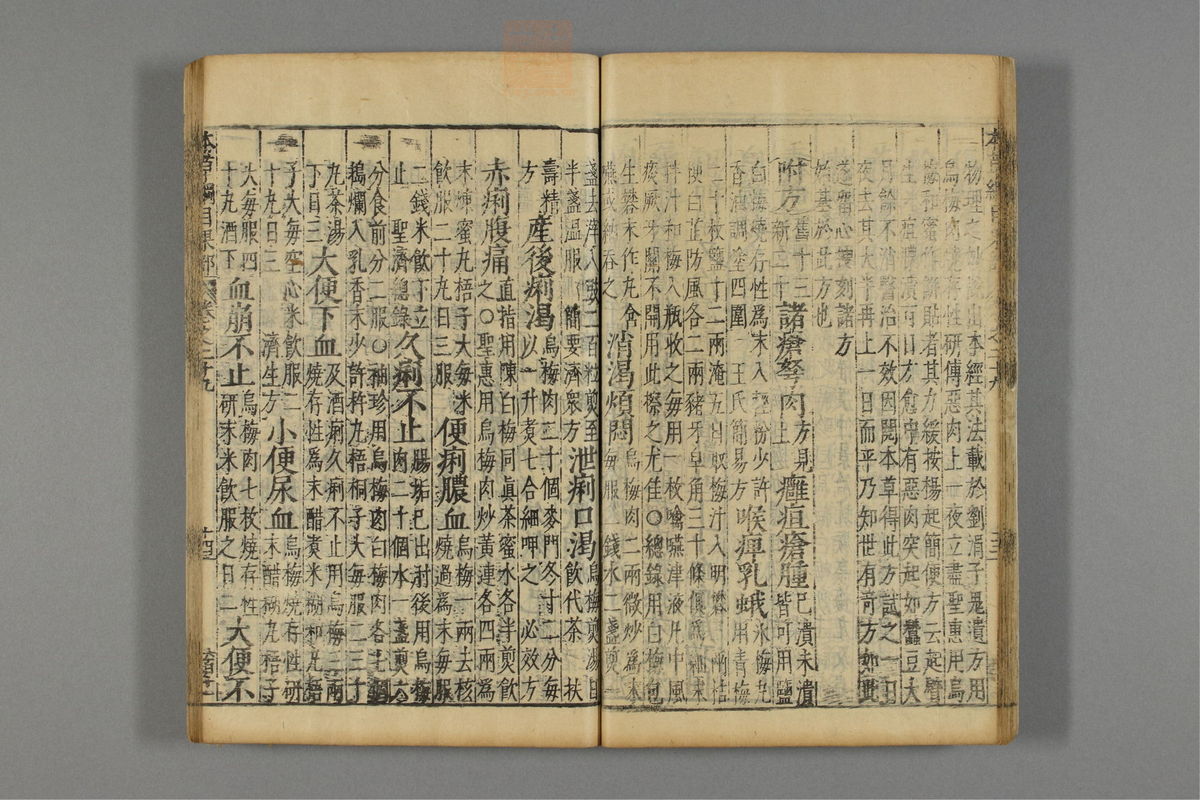 本草綱目果部 卷之二十九
物理之妙出本經其法載於劉涓子鬼遺方用
烏梅肉燒存性研傅惡肉上一夜立盡聖惠用烏
梅和蜜作餅貼者其力緩按楊起簡便方云起臂
生一疽膿潰百日方愈中有惡肉突起如蠶豆大
月餘不消醫治不效因閱本草得此方試之一日
夜去其大半再上一日而平乃知世有奇方如此
遂留心搜刻諸方
始基於此方也
附方舊十三新二十諸瘡弩肉方見上癰疽瘡腫已潰未潰皆可用鹽
白梅燒存性為末入輕粉少許香油調塗四圍 王氏簡易方喉痺乳蛾冰梅丸用青梅
二十枚鹽十二兩淹五日取梅汁入明礬三兩桔梗白芷防風各二兩豬牙皂角三十條俱為細末
拌汁和梅入瓶收之每用一枚噙嚥津液凡中風痰厥牙關不開用此擦之尤佳○總錄用白梅包
生礬末作丸含嚥或納吞之消渴煩悶烏梅肉二兩微炒為末每服二錢水二盞煎一
盞去滓入豉二百粒煎至半盞溫服 簡要濟衆方泄痢口渴烏梅煎湯日飲代茶 扶
壽精方產後痢渴烏梅肉二十個麥門冬十二分每以一升煮七合細呷之 必效方
赤痢腹痛直指用陳白梅同眞茶蜜水各半煎飲之○聖惠用烏梅肉炒黃連各四兩為
末煉蜜丸梧子大每米飲服二十丸日三服便痢膿血烏梅一兩去核燒過為末每服
二錢米飲下立止 聖濟總錄久痢不止腸垢已出肘後用烏梅肉二十個水一盞煎六
分食前分二服○袖珍用烏梅肉白梅肉各七個搗爛入乳香末少許杵丸梧桐子大每服二三十
丸茶湯下日三大便下血及酒痢久痢不止用烏梅三兩燒存性為末醋煮米糊和丸梧
子大每空心米飲服二十丸日三 濟生方小便尿血烏梅燒存性研末醋糊丸梧子
大每服四十丸酒下血崩不止烏梅肉七枚燒存性研末米飲服之日二大便不
本草綱目果部 卷之二十九